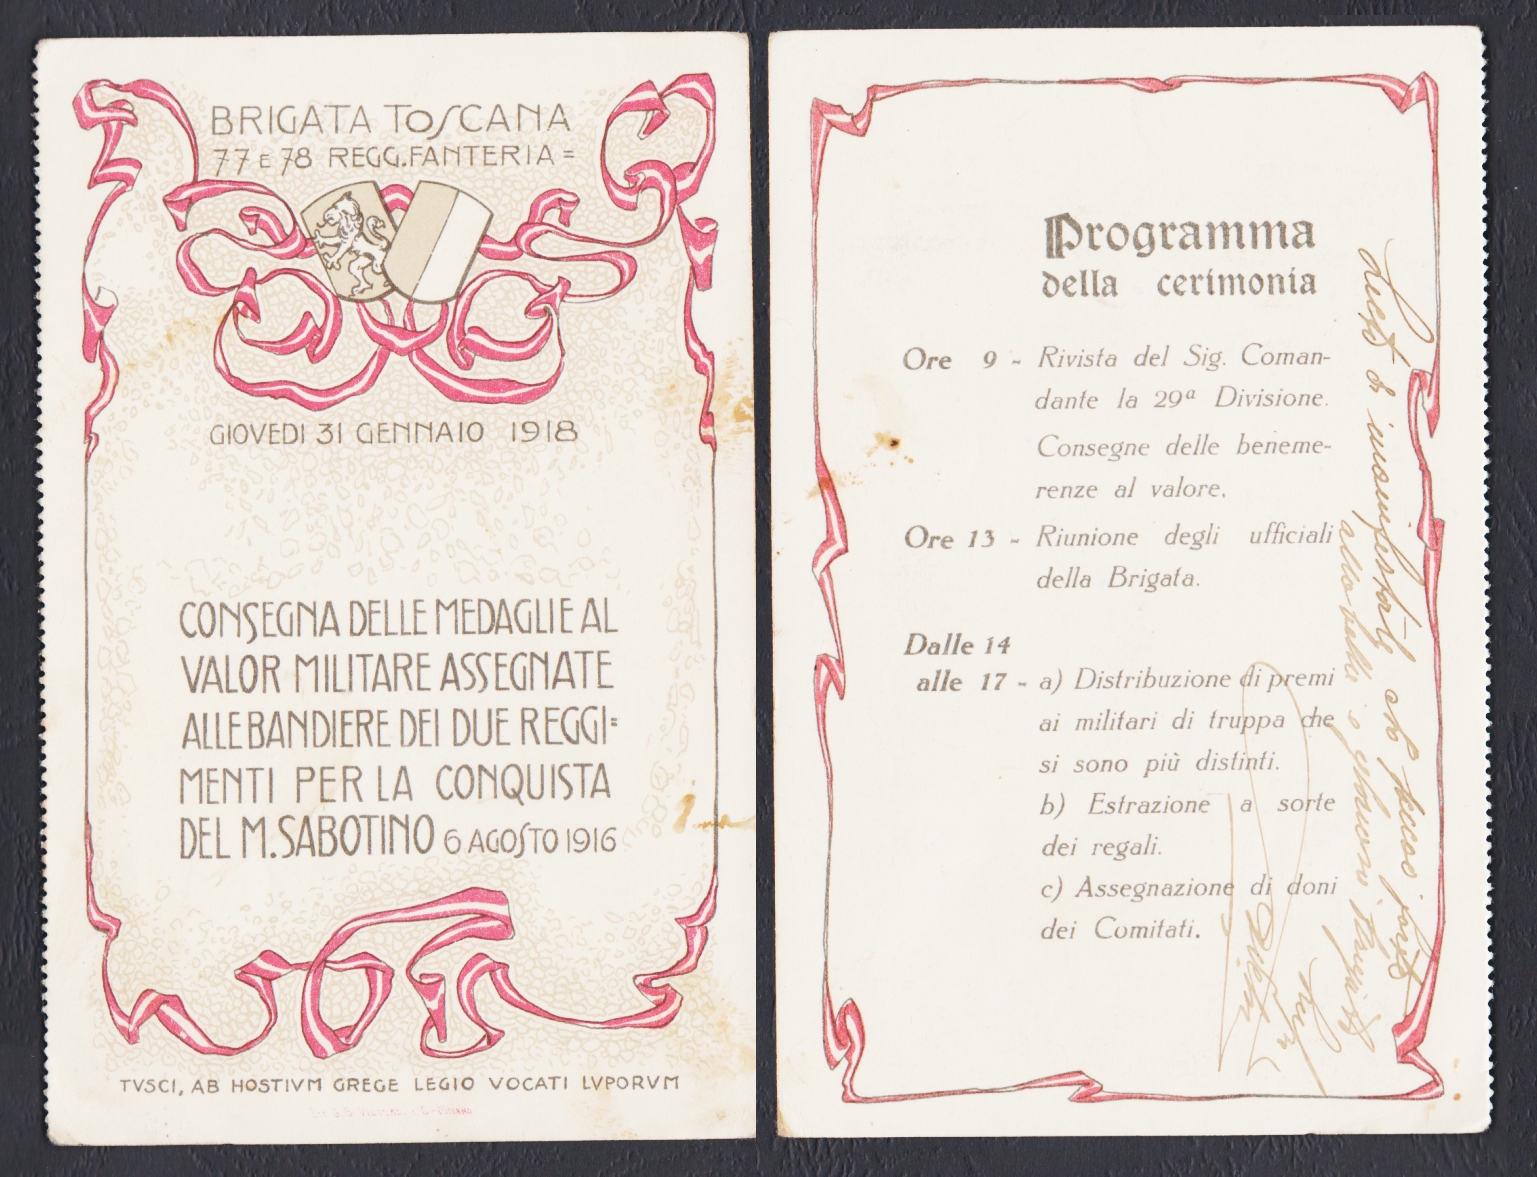 BRIGATA TOSCANA
77 E 78 REGG. FANTERIA =
GIOVEDI 31 GENNAIO 1918
CONSEGNA DELLE MEDAGLIE AL
VALOR MILITARE ASSEGNATE
ALLE BANDIERE DEI DUE REGGI=
MENTI PER LA CONQUISTA
DEL M. SABOTINO 6 AGOSTO 1916
TVSCI, AB HOSTIVM GREGE LEGIO VOCATI LVPORVM
Programma
della cerimonia
Ore 9 - Rivista del Sig. Coman-
dante la 29ª Divisione.
Consegne delle beneme-
renze al valore.
Ore 13 - Riunione degli ufficiali
della Brigata.
Dalle 14
alle 17 - a) Distribuzione di premi
ai militari di truppa che
si sono più distinti.
b) Estrazione a sorte
dei regali.
c) Assegnazione di doni
dei Comitati.